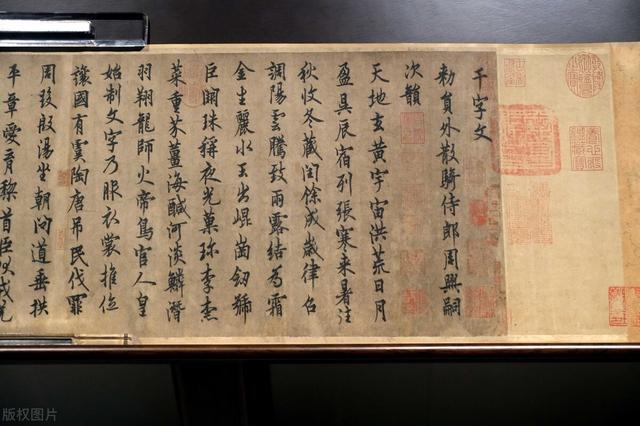 千字文
勑員外散騎侍郎周興嗣
次韻
天地玄黃宇宙洪荒日月
盈昃辰宿列張寒来暑往
秋收冬蔵閏餘成歲律呂
調陽雲騰致雨露結為霜
金生麗水玉出崐崗劒號
巨闕珠稱夜光菓珎李柰
菜重芥薑海鹹河淡鱗潛
羽翔龍師火帝鳥官人皇
始制文字乃服衣裳推位
讓國有虞陶唐吊民伐罪
周發殷湯坐朝問道垂拱
平章愛育黎首臣伏戎羌
版权图片